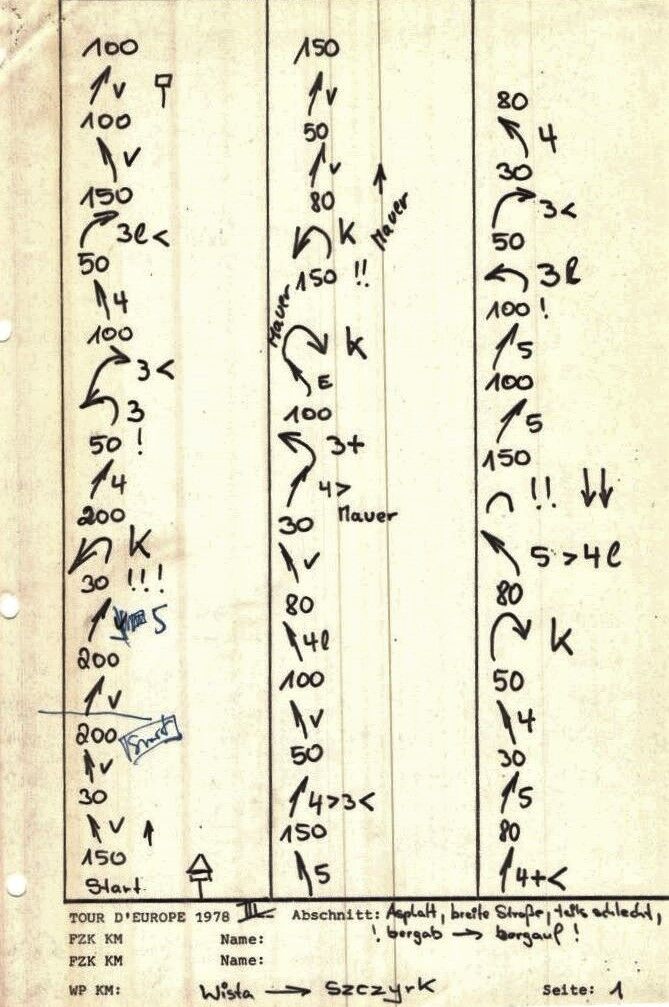 100
v
100
v
150
3l <
50
4
100
3 <
3
50 !
4
200
K
30 !!!
5
200
v
200 Start
v
30
v
150
Start
150
v
50
v
80
K
Mauer
150 !!
Mauer
K
E
100
3+
4>
Mauer
30
v
80
4l
100
v
50
4>3<
150
5
80
4
30
3<
50
3l
100 !
5
100
5
150
!!
5 >4l
80
K
50
4
30
5
80
4+<
TOUR D'EUROPE 1978 III Abschnitt: Asphalt, breite Straße, teils schlecht,
! bergab → bergauf !
FZK KM Name:
FZK KM Name:
WP KM: Wisła → Szczyrk Seite: 1